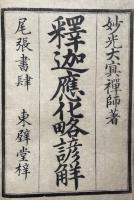 妙光大禪師著
釋迦應化略諺解
尾張書肆 東璧堂梓